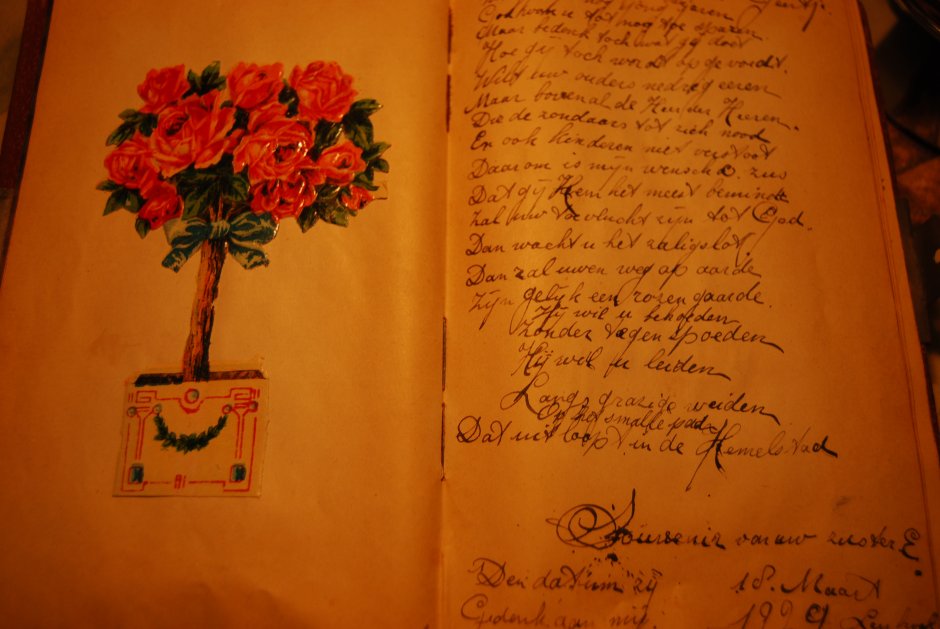 nog jong
God kwam u tot nog toe sparen.
Maar bedenk toch wat gij doet
Hoe gij toch wordt opgevoedt.
Wilt uw ouders nedrig eeren
Maar bovenal de Heer der Heeren.
Die de zondaars tot zich nood
En ook kinderen niet verstoot
Daarom is mijn wensch o zus
Dat gij Hem het meest bemindt
Zal uw toevlucht zijn tot God.
Dan wacht u het zalig lot.
Dan zal uwen weg op aarde
Zijn gelijk een rozengaarde.
Hij wil u behoeden
Zonder tegenspoeden
Hij wil u leiden
Langs grazige weiden
Op het smalle pad
Dat uit loopt in de Hemelstad
Souvenir van uw zuster E.
Den datum zij 18. Maart
Gedenk aan mij.